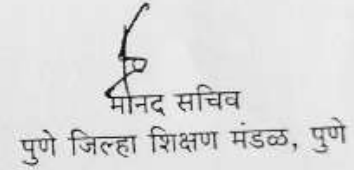 मानद सचिव
पुणे जिल्हा शिक्षण मंडळ, पुणे